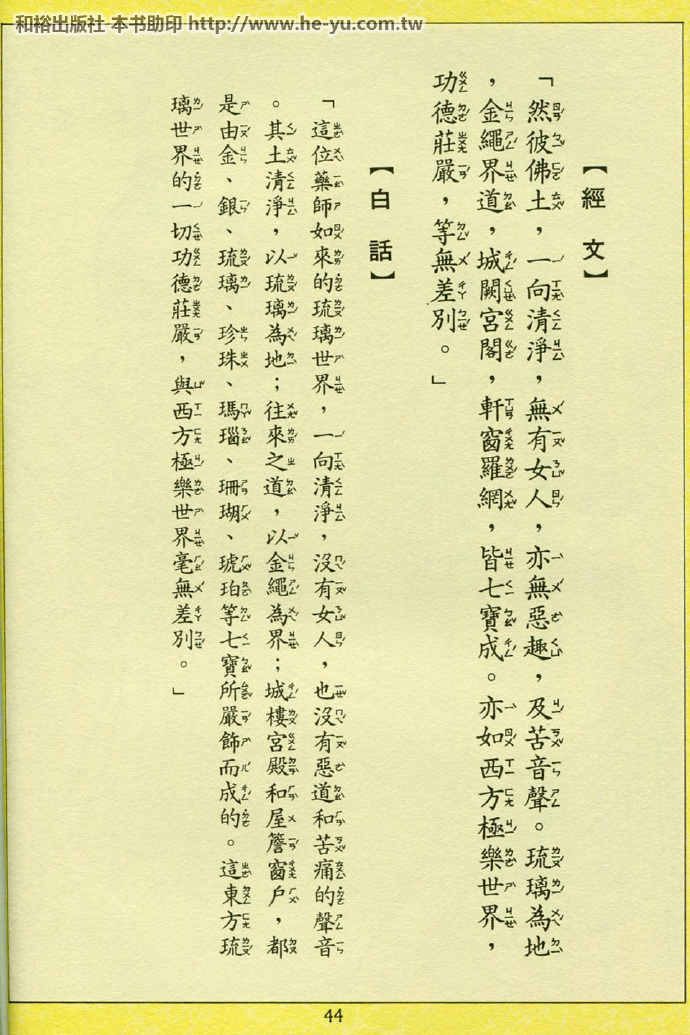 和裕出版社 本书助印 http://www.he-yu.com.tw
【經文】
「然彼佛土，一向清淨，無有女人，亦無惡趣，及苦音聲。琉璃為地
，金繩界道，城闕宮閣，軒窗羅網，皆七寶成。亦如西方極樂世界，
功德莊嚴，等無差別。」
【白話】
「這位藥師如來的琉璃世界，一向清淨，沒有女人，也沒有惡道和苦痛的聲音
。其土清淨，以琉璃為地；往來之道，以金繩為界；城樓宮殿和屋簷窗戶，都
是由金、銀、琉璃、珍珠、瑪瑙、珊瑚、琥珀等七寶所嚴飾而成的。這東方琉
璃世界的一切功德莊嚴，與西方極樂世界毫無差別。」
44